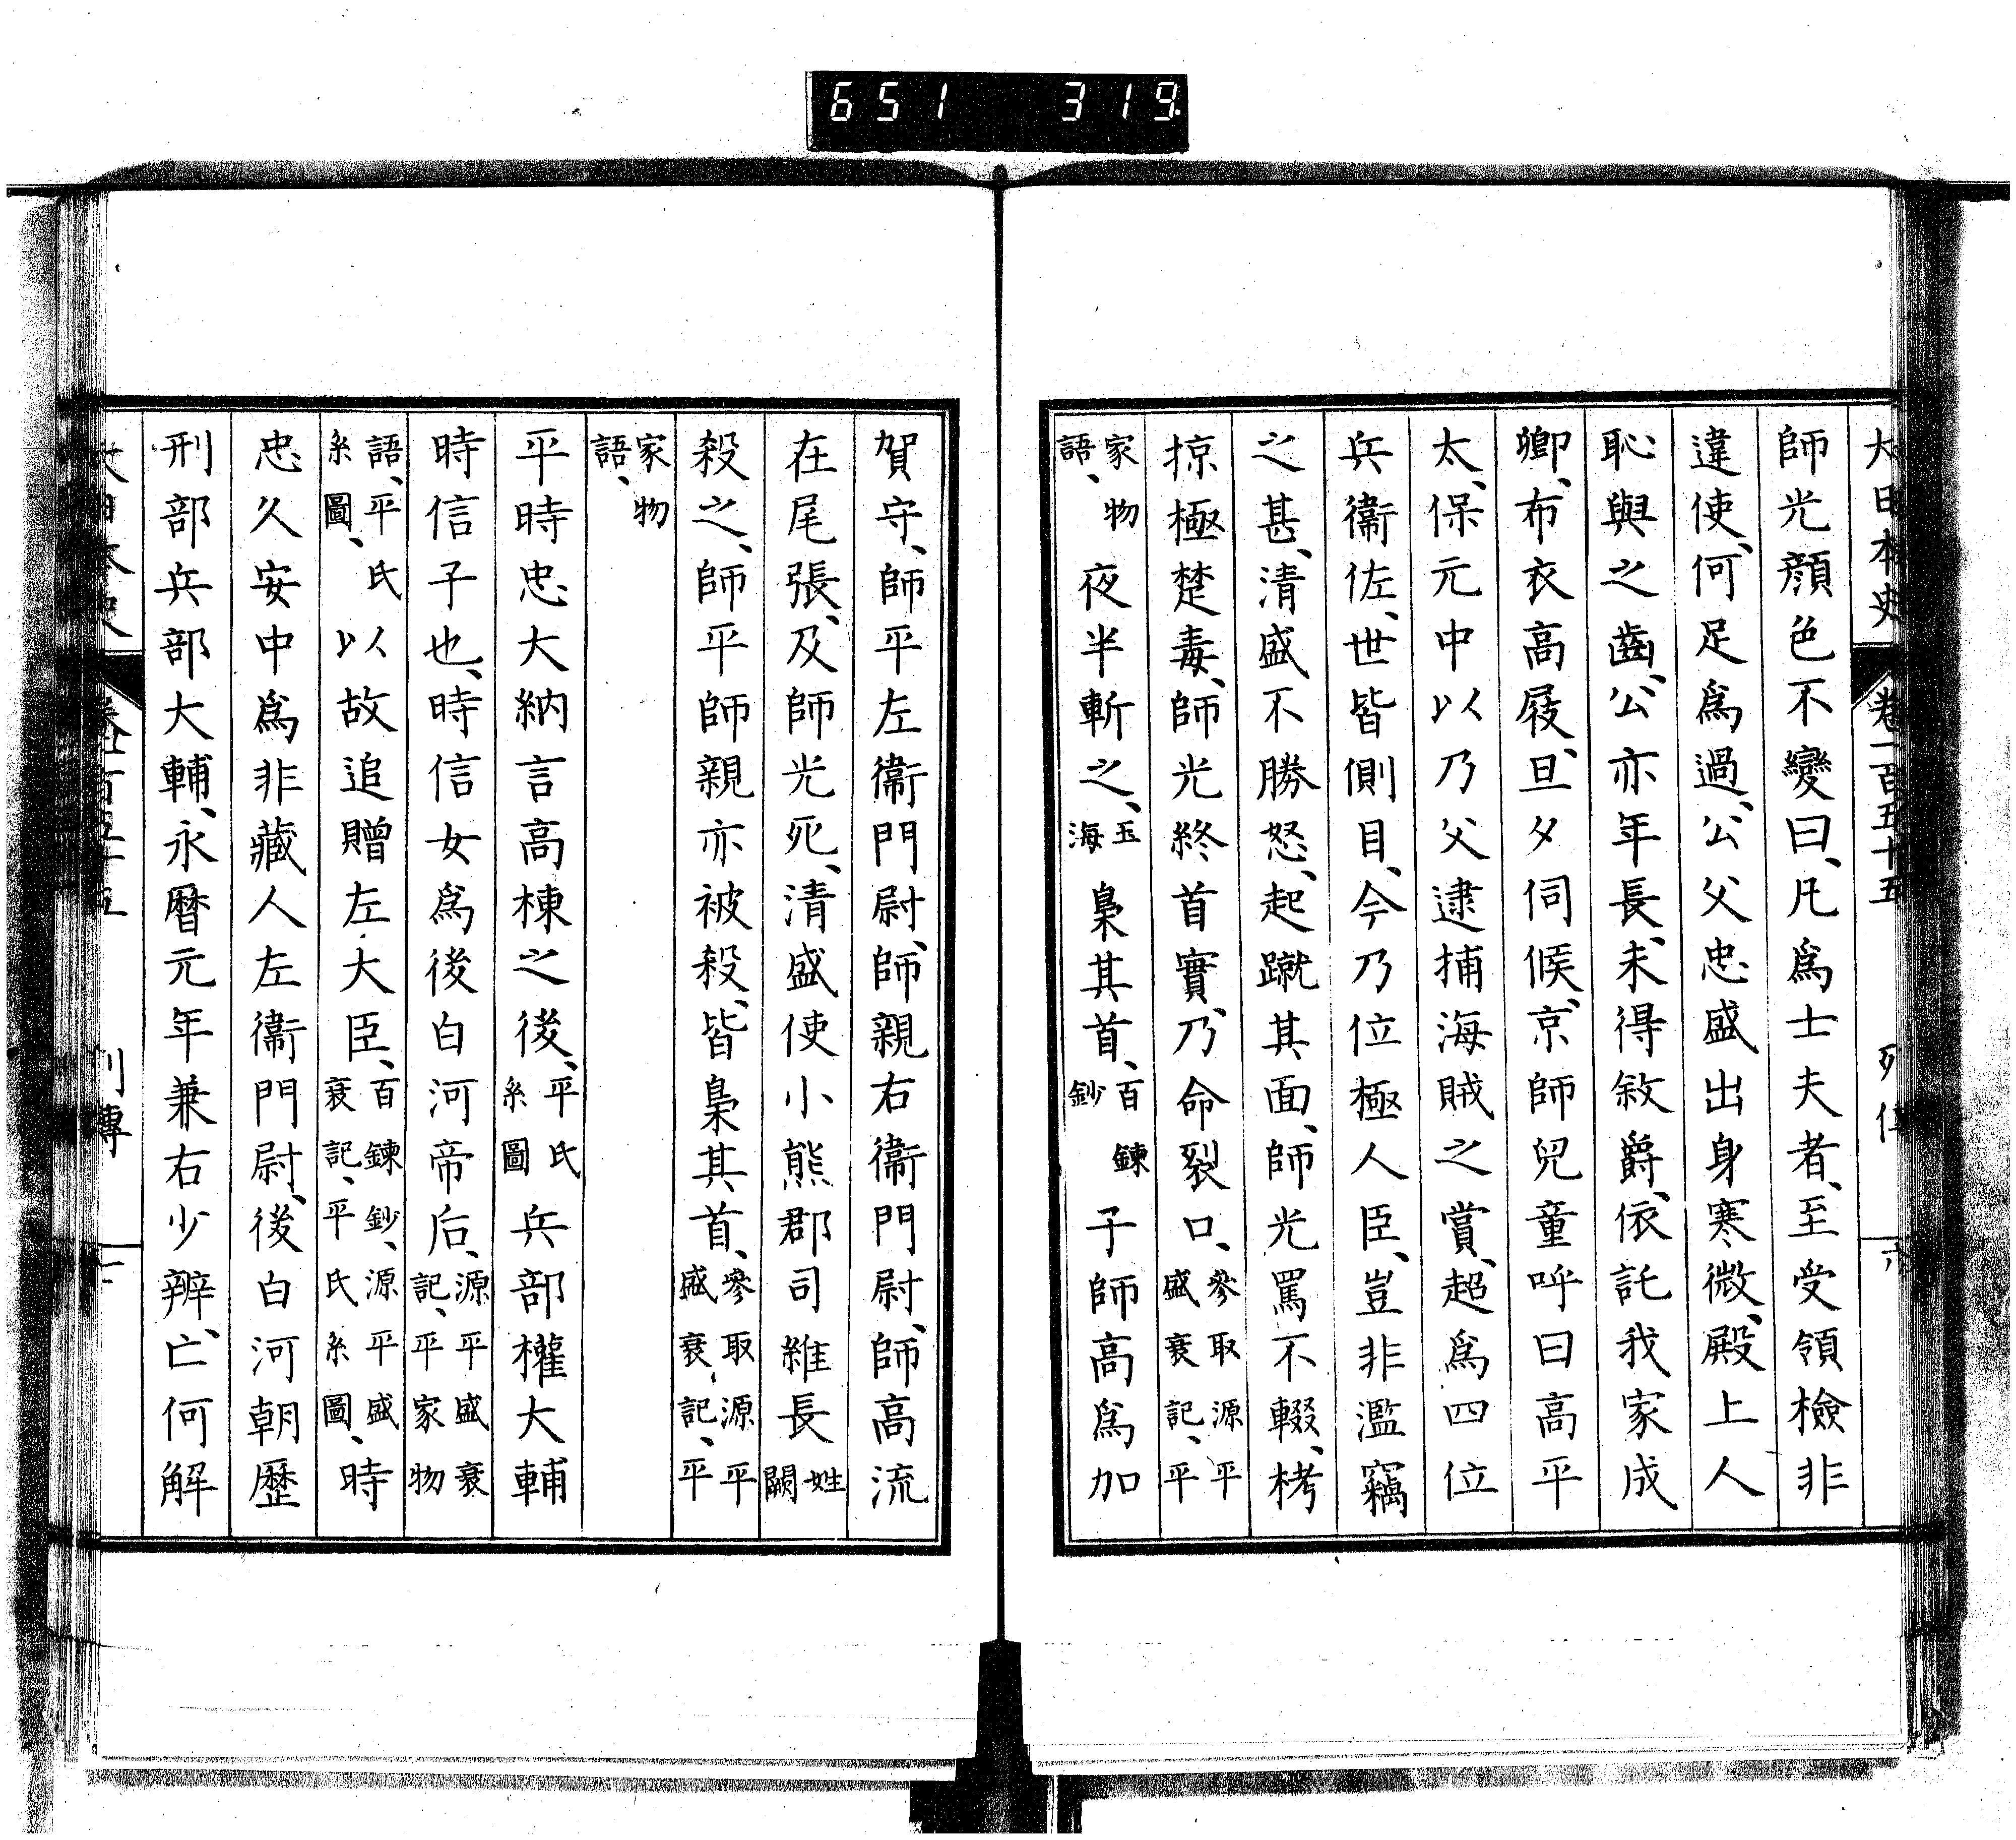 651 319
大日本史 卷一百五十五 列傳 六
師光顏色不變曰、凡爲士夫者、至受領檢非
違使、何足爲過、公父忠盛出身寒微、殿上人
恥與之齒、公亦年長、未得敘爵、依託我家成
卿、布衣高屐、旦夕伺候、京師兒童呼曰高平
太、保元中以乃父逮捕海賊之賞、超爲四位
兵衞佐、世皆側目、今乃位極人臣、豈非濫竊
之甚、清盛不勝怒、起蹴其面、師光罵不輟、栲
掠極楚毒、師光終首實、乃命裂口、參取源平盛衰記、平
家物語、夜半斬之、玉海梟其首、百鍊鈔子師高爲加
賀守、師平左衞門尉、師親右衞門尉、師高流
在尾張、及師光死、清盛使小熊郡司維長姓闕
殺之、師平師親亦被殺、皆梟其首、參取源平盛衰記、平
家物語、
平時忠大納言高棟之後、平氏系圖兵部權大輔
時信子也、時信女爲後白河帝后、源平盛衰記、平家物
語、平氏系圖、以故追贈左大臣、百鍊鈔、源平盛衰記、平氏系圖、時
忠久安中爲非藏人左衞門尉、後白河朝歷
刑部兵部大輔、永曆元年兼右少辨、亡何解
大日本史 卷一百五十五 列傳 七